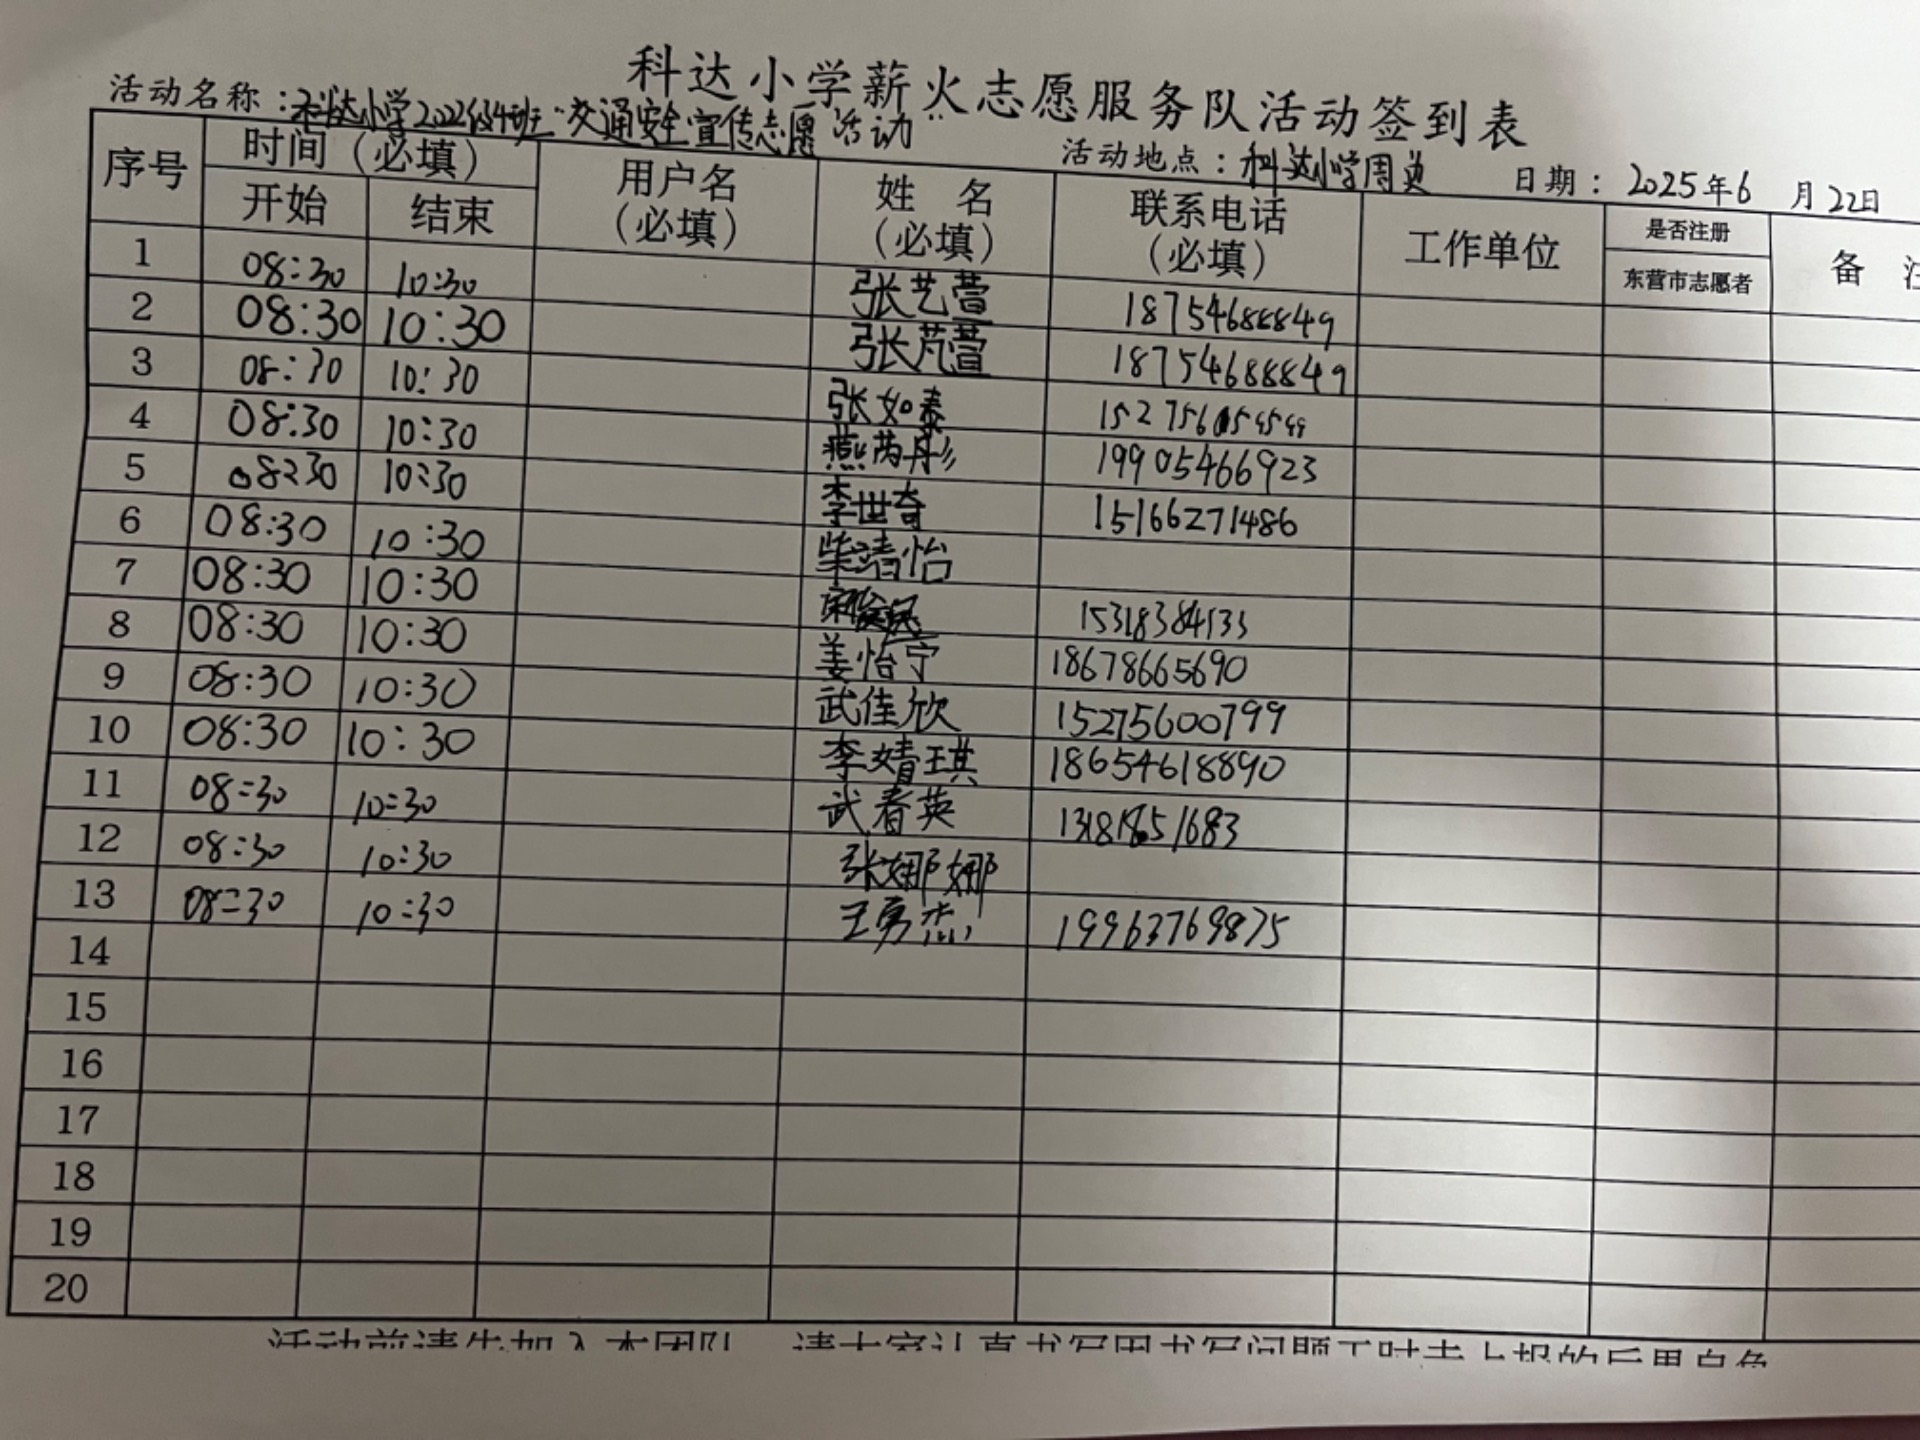 科达小学薪火志愿服务队活动签到表
活动名称：科达小学2022级4班"交通安全宣传志愿活动 活动地点：科达小学周边 日期：2025年6月22日
序号 时间（必填） 用户名（必填） 姓 名（必填） 联系电话（必填） 工作单位 是否注册 东营市志愿者 备
开始 结束
1 08:30 10:30 张艺萱 18754688849
2 08:30 10:30 张芃萱 18754688849
3 08:30 10:30 张如泰
4 08:30 10:30 燕芮彤 19905466923
5 08230 10:30 李世奇 15166271486
6 08:30 10:30 柴靖怡
7 08:30 10:30 15318384133
8 08:30 10:30 姜怡宁 18678665690
9 08:30 10:30 武佳欣 15275600799
10 08:30 10:30 李婧琪 18654618890
11 08:30 10:30 武春英
12 08:30 10:30 张娜娜
13 08:30 10:30 王勇杰 19963769875
14
15
16
17
18
19
20